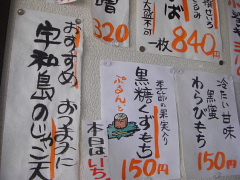 おすすめ
おつまみに
宇和島のじゃこ天
320
一枚 840円
季節の果実入り
黒糖くずもち
ぷるんと
本日はいち
150円
冷たい甘味
黒蜜
わらびもち
150円